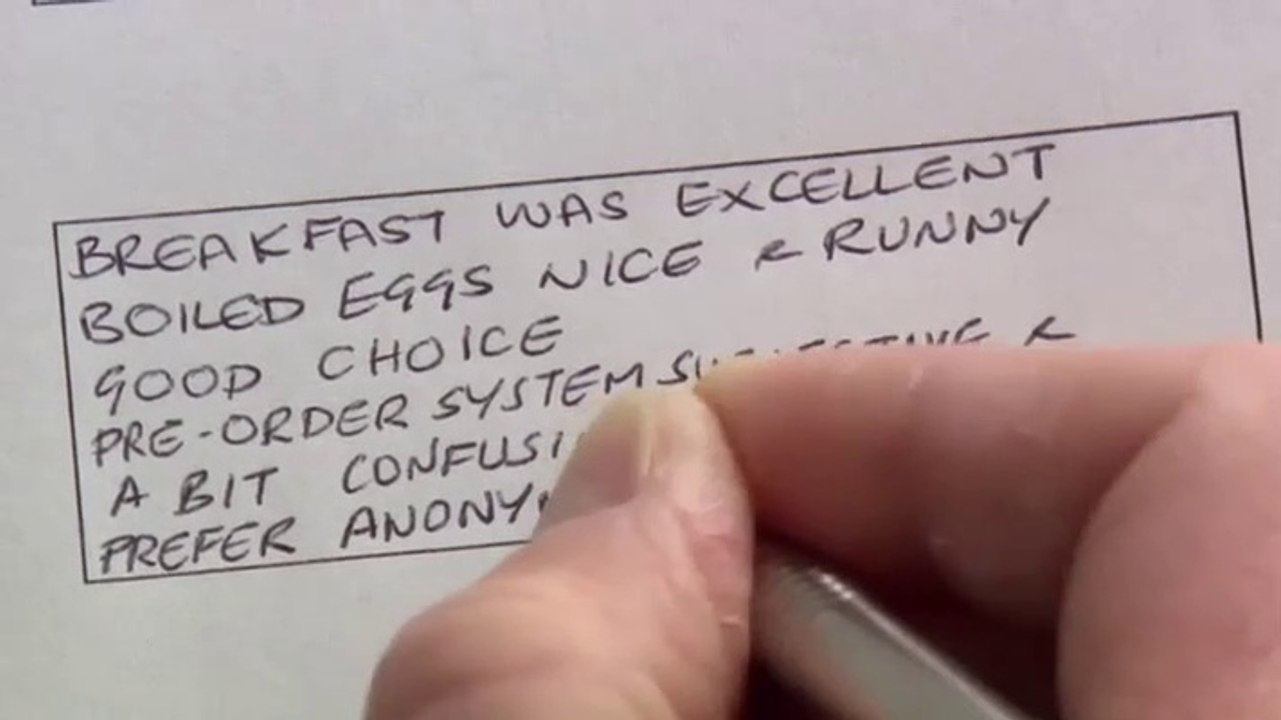 BREAKFAST WAS EXCELLENT
BOILED EGGS NICE & RUNNY
GOOD CHOICE
PRE-ORDER SYSTEM &
A BIT
PREFER